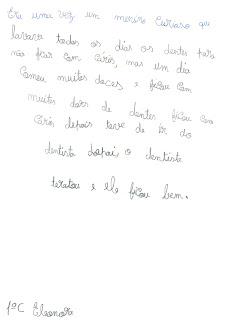 Era uma vez um menino curioso que
lavava todos os dias os dentes para
não ficar com cáries, mas um dia
comeu muitos doces e ficou com
muitas dors de dentes ficou com
cáries depois teve de ir ao
dentista depois o dentista
tratou e ele ficou bem.
1ºC Eleonora